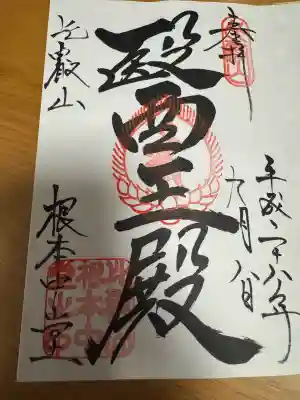 奉拝
平成二十八年
九月八日
醫王殿
比叡山
根本中堂